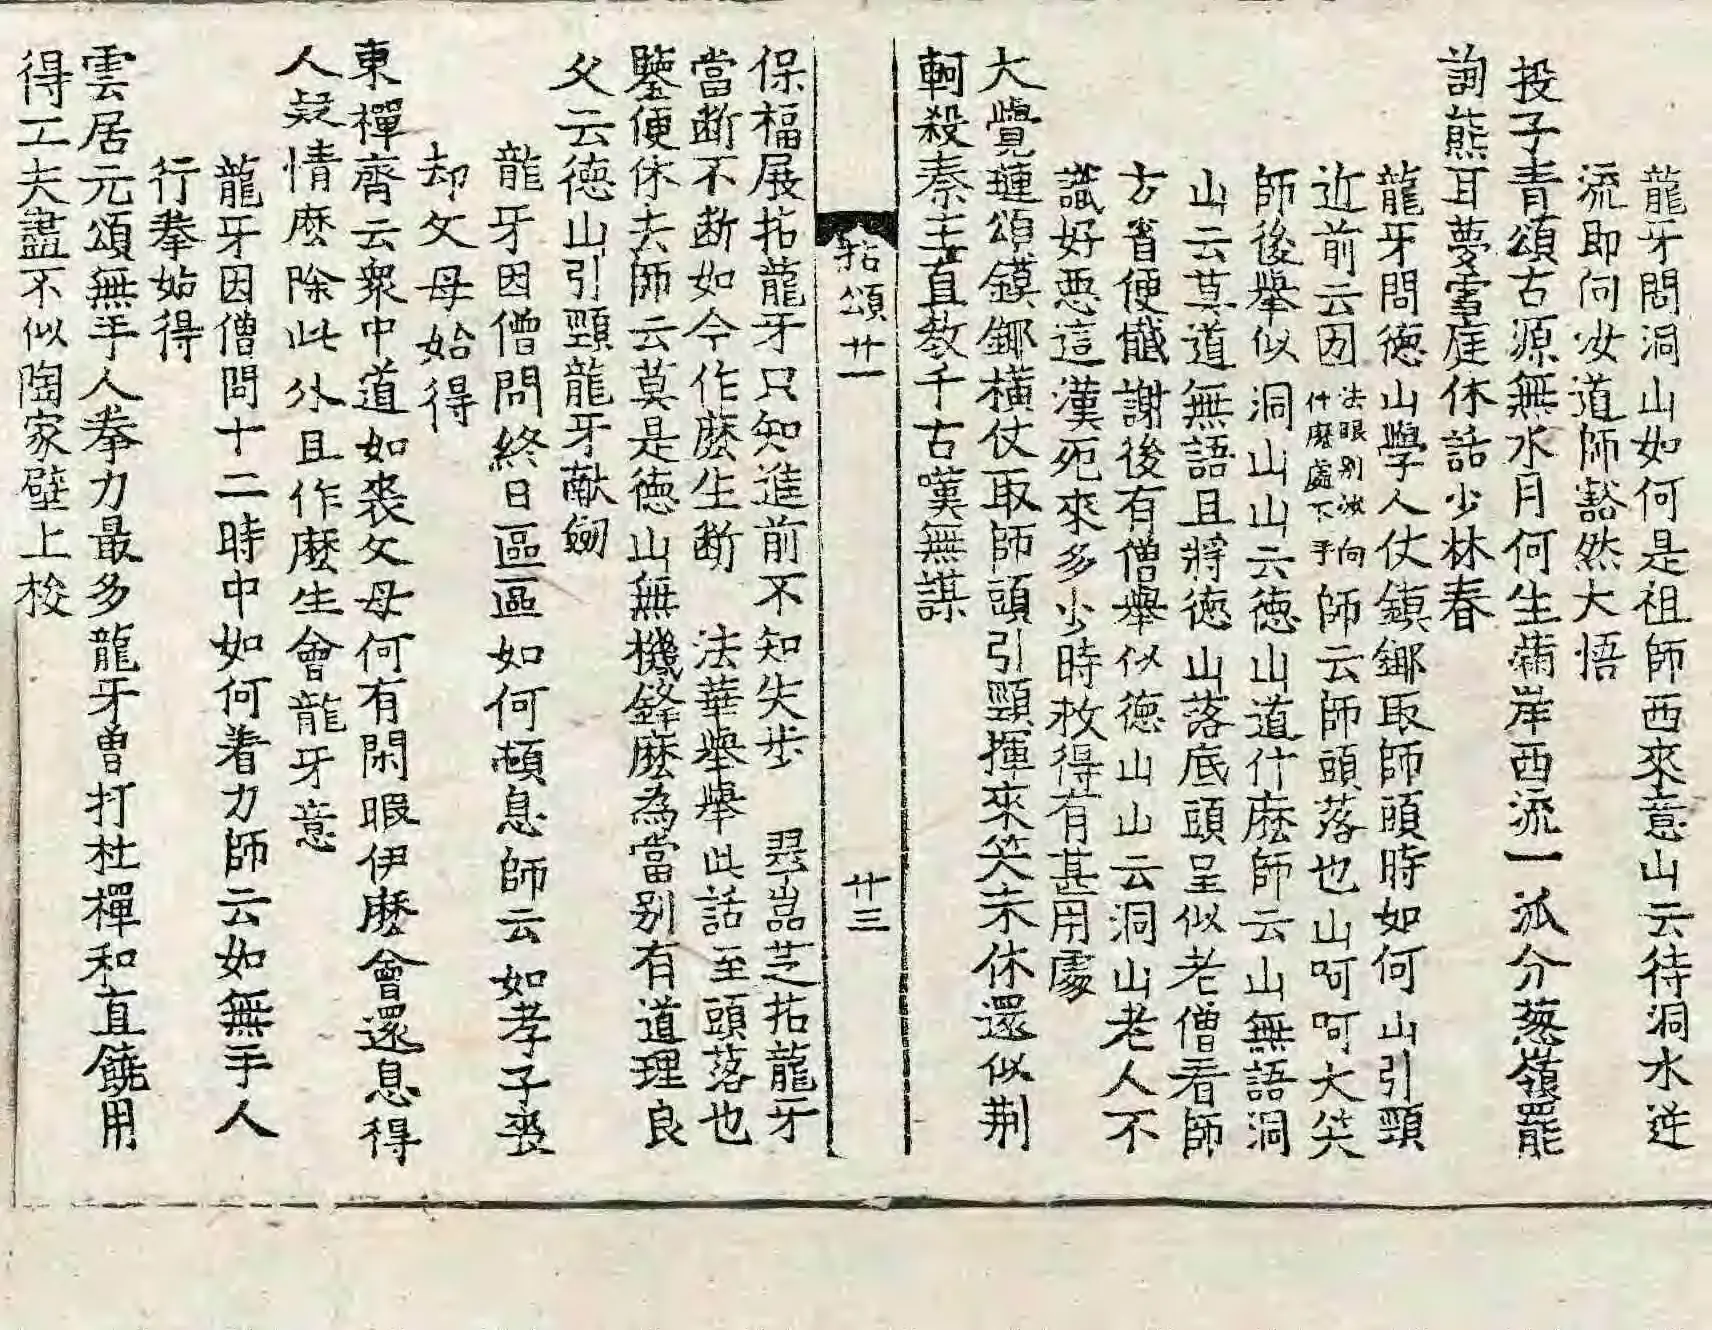 龍牙問洞山如何是祖師西來意山云待洞水逆
流即向汝道師豁然大悟
投子青頌古源無水月何生滿岸西流一派分葱嶺罷
詢熊耳夢雪庭休話少林春
龍牙問德山學人仗鏌鎁取師頭時如何山引頸
近前云㘞法眼別汝向什麽處下手師云師頭落也山呵呵大笑
師後舉似洞山山云德山道什麽師云山無語洞
山云莫道無語且將德山落底頭呈似老僧看師
方省便懺謝後有僧舉似德山山云洞山老人不
識好惡這漢死來多少時救得有甚用處
大覺璉頌鏌鎁橫仗取師頭引頸揮來笑未休還似荆
軻殺秦主直教千古嘆無謀
拈頌廿一
廿三
保福展拈龍牙只知進前不知失步 瑯琊拈龍牙
當斷不斷如今作麽生斷 法華舉舉此話至頭落也
鑒便休去師云莫是德山無機鋒麽為當别有道理良
久云德山引頸龍牙獻劒
龍牙因僧問終日區區如何頓息師云如孝子喪
却父母始得
東禪齊云衆中道如喪父母何有閑暇伊麽會還息得
人疑情麽除此外且作麽生會龍牙意
龍牙因僧問十二時中如何着力師云如無手人
行拳始得
雲居元頌無手人拳力最多龍牙曾打杜禪和直饒用
得工夫盡不似陶家壁上梭